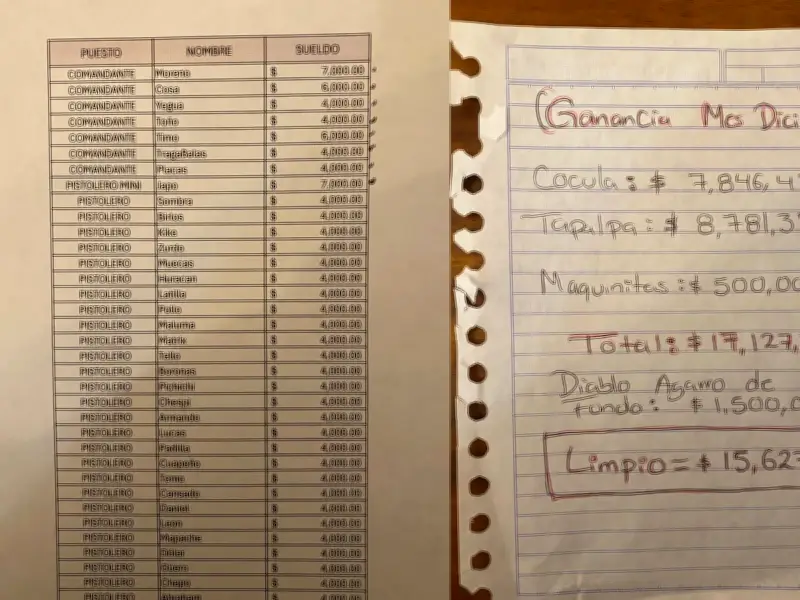 PUESTO NOMBRE SUELDO
COMANDANTE Moreno $ 7,000.00
COMANDANTE Cosa $ 6,000.00
COMANDANTE Yegua $ 4,000.00
COMANDANTE Toño $ 4,000.00
COMANDANTE Timo $ 6,000.00
COMANDANTE TragaBalas $ 4,000.00
COMANDANTE Placas $ 4,000.00
PISTOLERO MINI $ 7,000.00
PISTOLERO Sombra $ 4,000.00
PISTOLERO $ 4,000.00
PISTOLERO Kiko $ 4,000.00
PISTOLERO Zurdo $ 4,000.00
PISTOLERO Muecas $ 4,000.00
PISTOLERO Huracan $ 4,000.00
PISTOLERO $ 4,000.00
PISTOLERO Pollo $ 4,000.00
PISTOLERO Maluma $ 4,000.00
PISTOLERO $ 4,000.00
PISTOLERO $ 4,000.00
PISTOLERO $ 4,000.00
PISTOLERO $ 4,000.00
PISTOLERO $ 4,000.00
PISTOLERO Armando $ 4,000.00
PISTOLERO Lucas $ 4,000.00
PISTOLERO Padilla $ 4,000.00
PISTOLERO $ 4,000.00
PISTOLERO $ 4,000.00
PISTOLERO $ 4,000.00
PISTOLERO Daniel $ 4,000.00
PISTOLERO Leon $ 4,000.00
PISTOLERO Mapache $ 4,000.00
PISTOLERO $ 4,000.00
PISTOLERO Güero $ 4,000.00
PISTOLERO Chapo $ 4,000.00
PISTOLERO Abraham $ 4,000.00
(Ganancia Mes Dici
Cocula: $ 7,846,4
Tapalpa: $ 8,781,3
Maquinitas: $ 500,00
Total: $ 17,127,
Diablo Agarro de
fondo: $ 1,500,0
Limpio = $ 15,627